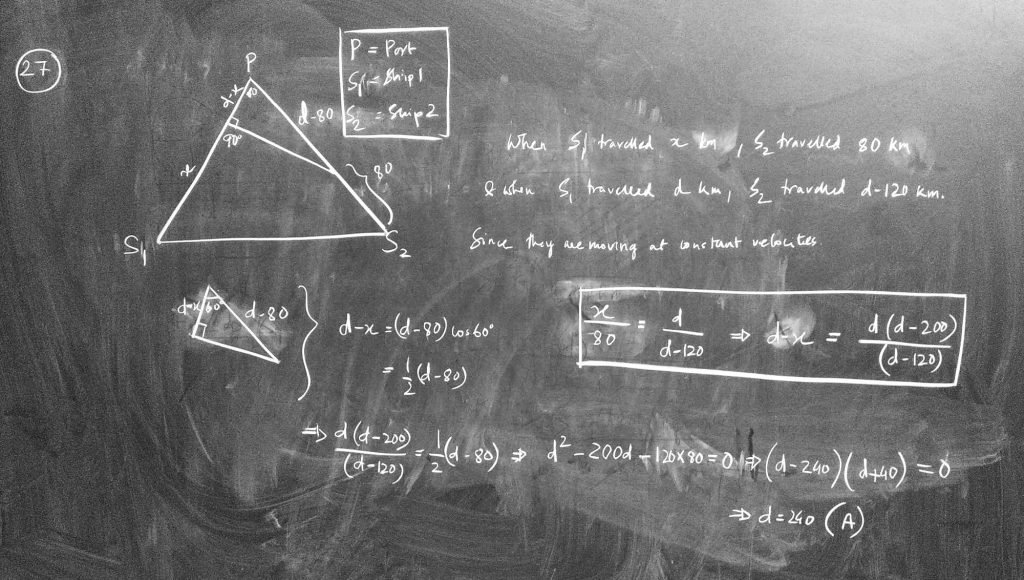 27
P
P = Port
S1 = Ship 1
S2 = Ship 2
d-x
60
d-80
90°
x
80
S1
S2
When S1 travelled x km, S2 travelled 80 km
& when S1 travelled d km, S2 travelled d-120 km.
Since they are moving at constant velocities
x/80 = d/(d-120) ⇒ d-x = d(d-200)/(d-120)
d-x
60°
d-80
d-x = (d-80) cos60°
= 1/2 (d-80)
⇒ d(d-200)/(d-120) = 1/2 (d-80) ⇒ d² - 200d - 120×80 = 0 ⇒ (d-240)(d+40) = 0
⇒ d = 240 (A)